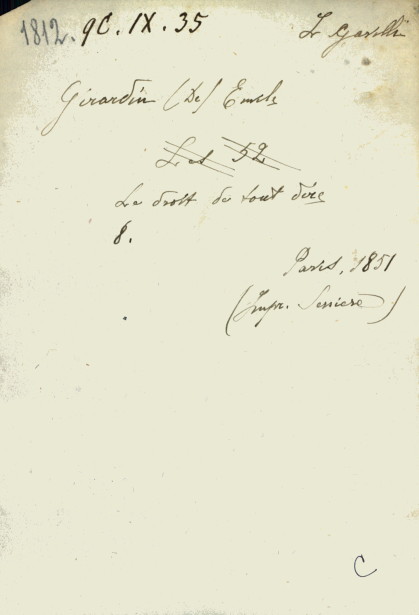 1812. 9C. IX. 35
Girardin (De) Emile
Les 52
Le droit de tout dire
8.
Paris, 1851
(Impr. Serriere)
C